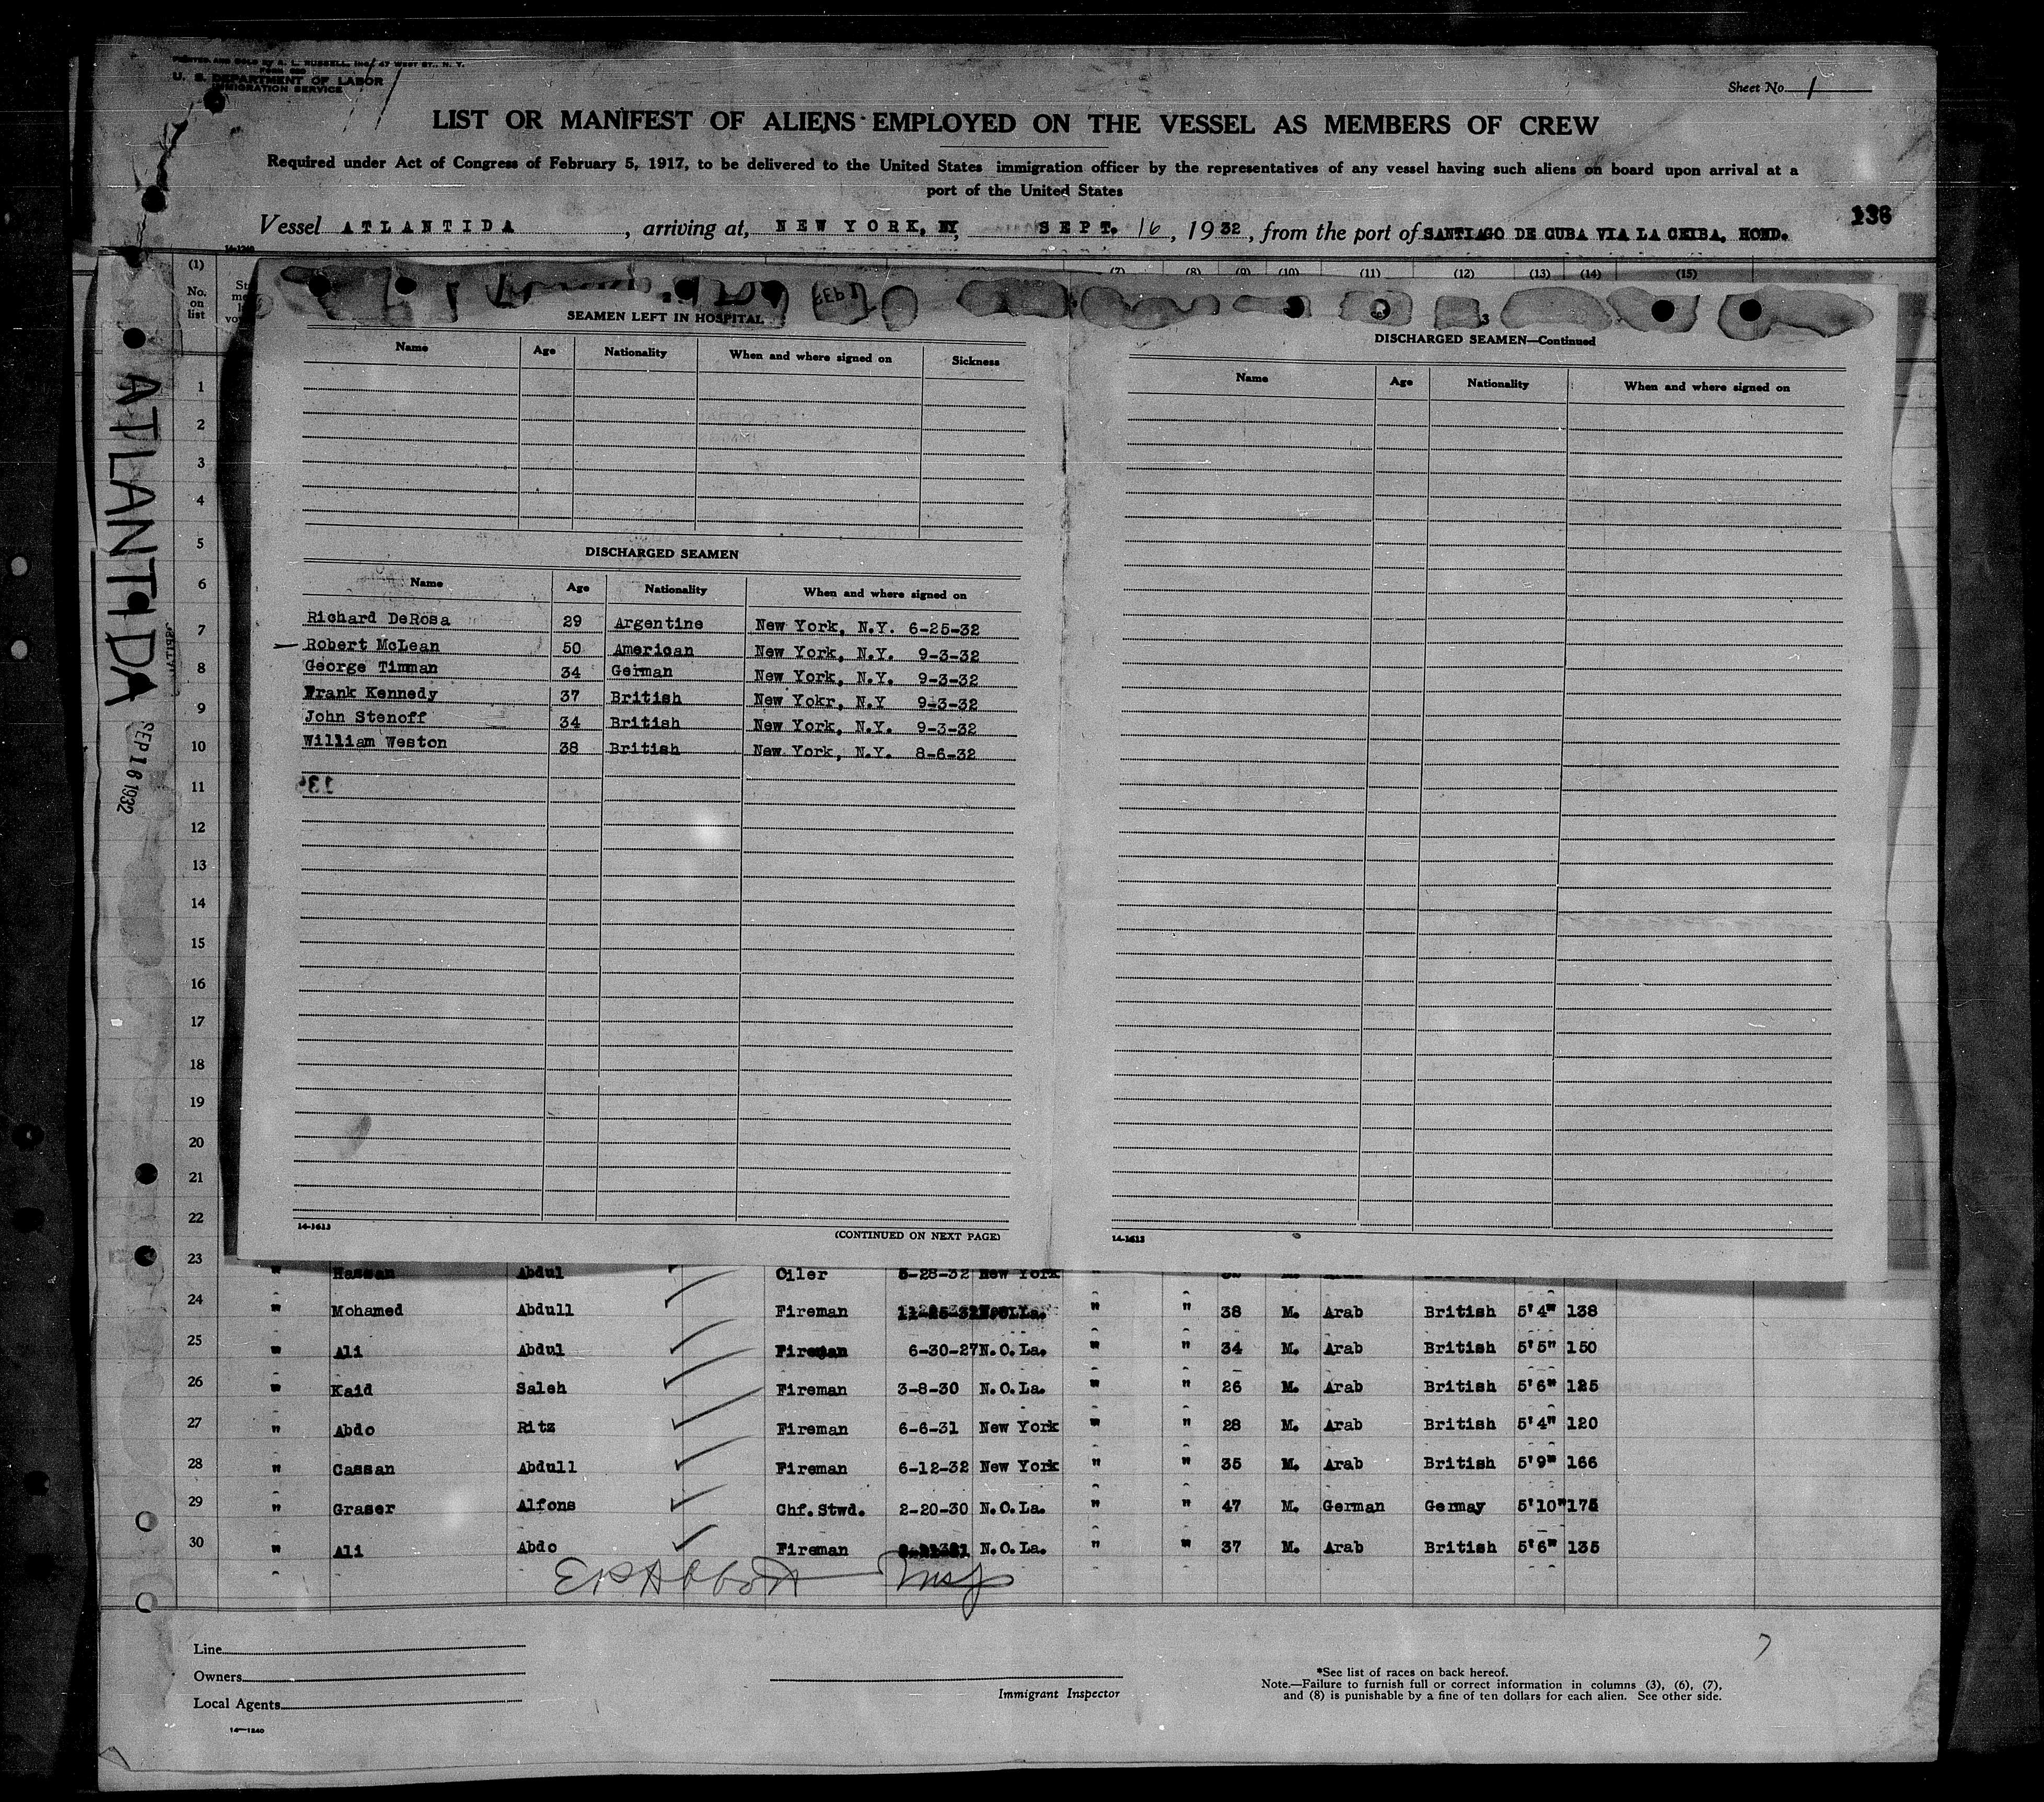 PRINTED AND SOLD BY A. L. RUSSELL, INC., 47 WEST ST., N. Y.
U. S. DEPARTMENT OF LABOR
IMMIGRATION SERVICE
Sheet No. 1
LIST OR MANIFEST OF ALIENS EMPLOYED ON THE VESSEL AS MEMBERS OF CREW
Required under Act of Congress of February 5, 1917, to be delivered to the United States immigration officer by the representatives of any vessel having such aliens on board upon arrival at a
port of the United States
136
Vessel ATLANTIDA, arriving at, NEW YORK, NY, SEPT. 16, 1932, from the port of SANTIAGO DE CUBA VIA LA CEIBA, HOND.
14-1240
(1) (7) (8) (9) (10) (11) (12) (13) (14) (15)
No. on list
ATLANTIDA
SEP 16 1932
SEAMEN LEFT IN HOSPITAL
Name Age Nationality When and where signed on Sickness
DISCHARGED SEAMEN
Name Age Nationality When and where signed on
Richard DeRosa 29 Argentine New York, N.Y. 6-25-32
Robert McLean 50 American New York, N.Y. 9-3-32
George Timman 34 German New York, N.Y. 9-3-32
Frank Kennedy 37 British New Yokr, N.Y 9-3-32
John Stenoff 34 British New York, N.Y. 9-3-32
William Weston 38 British New York, N.Y. 8-6-32
14-1613
(CONTINUED ON NEXT PAGE)
3
DISCHARGED SEAMEN—Continued
Name Age Nationality When and where signed on
14-1613
1
2
3
4
5
6
7
8
9
10
11
12
13
14
15
16
17
18
19
20
21
22
23 " Hassan Abdul Oiler 5-28-32 New York "
24 " Mohamed Abdull Fireman " " 38 M. Arab British 5'4" 138
25 " Ali Abdul Fireman 6-30-27 N.O.La. " " 34 M. Arab British 5'5" 150
26 " Kaid Saleh Fireman 3-8-30 N.O.La. " " 26 M. Arab British 5'6" 125
27 " Abdo Ritz Fireman 6-6-31 New York " " 28 M. Arab British 5'4" 120
28 " Cassan Abdull Fireman 6-12-32 New York " " 35 M. Arab British 5'9" 166
29 " Graser Alfons Chf. Stwd. 2-20-30 N.O.La. " " 47 M. German Germay 5'10" 175
30 " Ali Abdo Fireman N.O.La. " " 37 M. Arab British 5'6" 135
Line
Owners
Local Agents
14—1240
Immigrant Inspector
*See list of races on back hereof.
Note.—Failure to furnish full or correct information in columns (3), (6), (7),
and (8) is punishable by a fine of ten dollars for each alien. See other side.